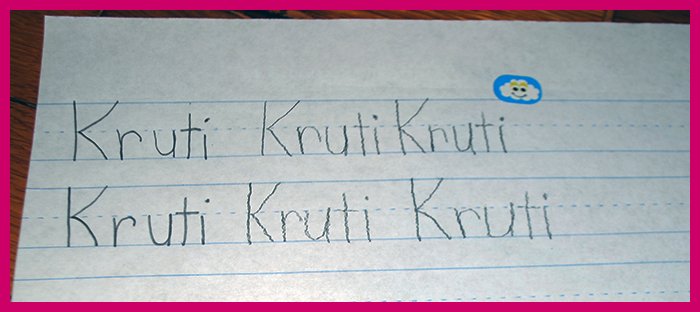 Kruti Kruti Kruti
Kruti Kruti Kruti